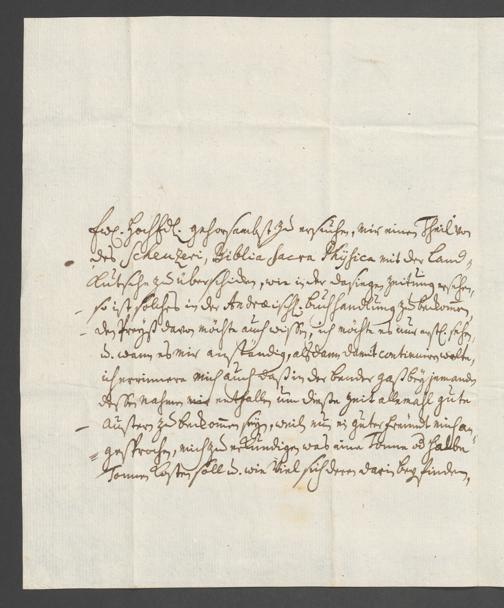 Ew. HochEdl. gehorsambst zu ersuchen, mir einen Theil von
des Scheuzeri, Biblia Sacra Physica mit der Land,,
Kutsche zu überschicken, wie in der dasigen zeitung ersehen,
so ist solches in der Andreæisch. buchhandlung zu bekommen,
den Preyß davon möchte auch wißen, ich möchte es nur erstl. sehen,
u. wann es mir anständig, alßdann damit continuiren wolte,
ich erinnere mich auch daß in der bender gaß bey jemanden
deßen nahmen mir entfallen um dieße zeit allemahl gute
Austern zu bekommen seyn, weil nun ein guter freund mich an,,
gesprochen, mich zu erkundigen was eine Tonne od. halbe
Tonnen kosten soll u. wie viel sich deren darin befinden,